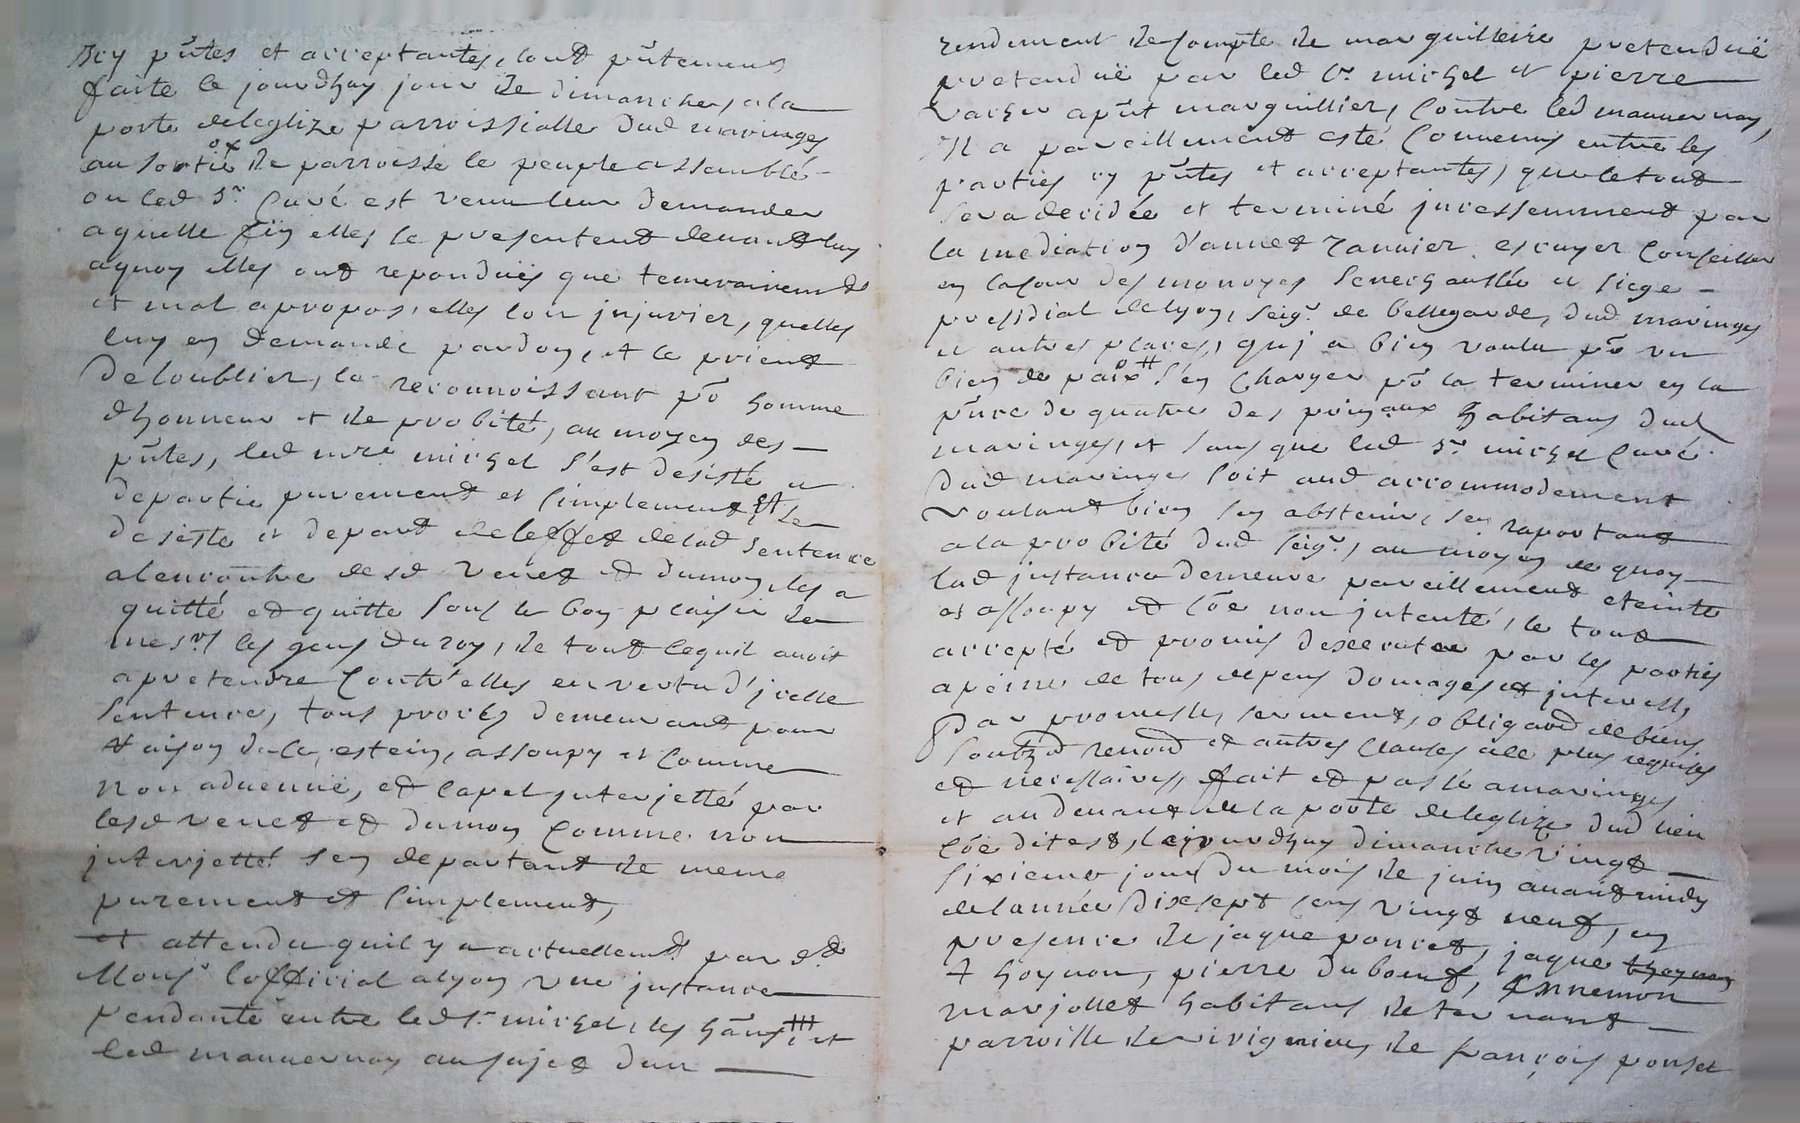 Icy pñtes et acceptantes, tout pñtement
faite le jourdhuy jour de dimanche, a la
porte deleglize parroissialle dud maringes
au sortie de parroisse le peuple assemblé
ou led Sr. Curé est venu leur demander
aquelle fin elles se presentent devant luy
aquoy elles ont repondües que temerairemt
et mal apropos, elles lon injurier, quelles
luy en demande pardon, et le prient
deloublier, le reconnoissant pō homme
dhonneur et de probité, au moyen des
pñtes, led mre michel s'est desisté et
departie purement et simplement, et se
desiste et depart deleffet delad sentence
alencontre desd Venet et dumon, les a
quitté et quitte sous le bon plaisir de
mesrs les gens du roy, de tout cequil avoit
apretendre Contr'elles en vertu d'jcelle
Sentence, tous procés demeurant pour
raison dece, estein, assoupy et comme
non advenüe, et lapel interjetté par
lesd Venet et dumon comme non
interjetté sen departant de meme
purement et simplement,
et attendu quil y a actuellemt pard.t
Monsr. lofficial alyon une instance
pendante entre led Sr. michel, les hãns, et
led mannevnay au sujet dun
rendement decompte de marguilleire pretenduë
pretenduë par led Sr. michel et pierre
apñt marguillier, Contre led mannevnay,
Il a pareillement esté Convenus entre les
parties cy pñtes et acceptantes, que le tout
sera decidée et terminé incessemment par
la mediation d'annet ranvier escuyer Conseiller
en lacour des monoyes senechaussée et siege
presidial delyon, seigr. de bellegarde, dud maringes
et autres places, quj a bien voulu pō un
bien de paix s'en charger pō la terminer en la
pñce de quatre des pñaux habitans dud
maringes, et sans que led Sr. michel Curé
dud maringes soit aud accommodement
voulant bien sen abstenir, sen raportant
ala probité dud seigr., au moyen de quoy
lad instance demeure pareillement eteinte
et assoupy et cõe non jntenté, le tout
accepté et promis dexecuter par les parties
apeine de tous depens domages et interests,
Par promesses serment, obligaōn debiens
soubzōn renoōn et autres clauses ale plus requises
et necessaires, fait et passé amaringes
et au devant de la porte deleglize dud lieu
cõe dit est, lejourdhuy dimanche vingt
sixieme jour du mois de juin avant midy
delannée dixsept cens vingt neuf, en
presence de jaque poncet, jaque thoynon
thoynon, pierre duboeuf, Annemon
marjollet habitans de ternant
parroisse de virignieu, de françois ponset